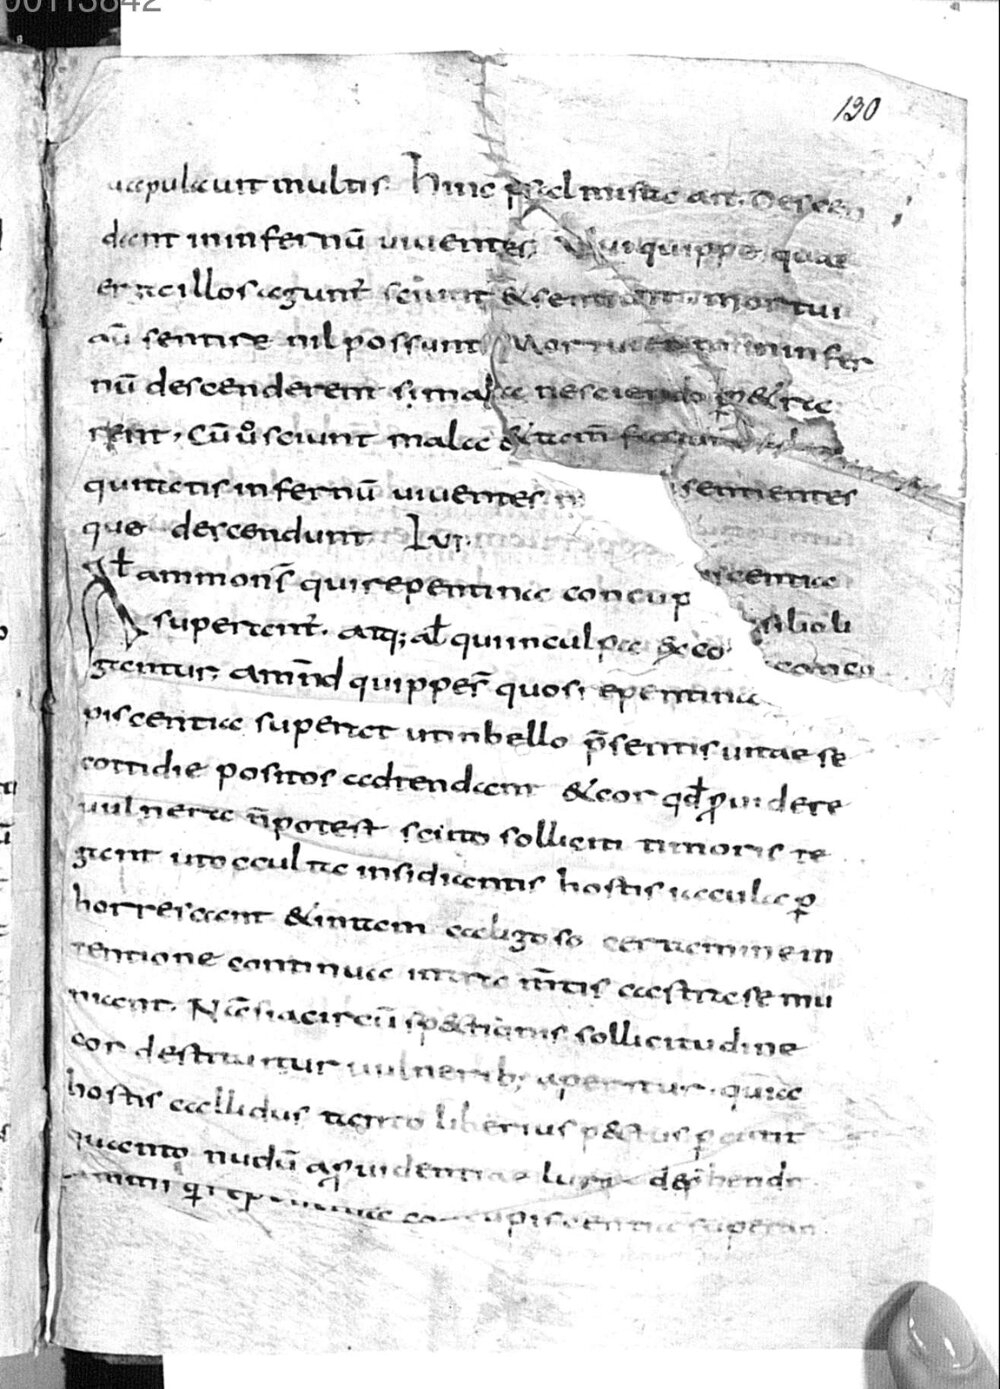 00113842
130
uapulauit multis. Hinc psalmista ait. Descen
dant in infernū uiuentes. Qui quippe quae
erga illos agunt̄ sciunt & sentiunt. mortui
aū sentire nil possunt. Mortui in infer
nū descenderent si mala nesciendo p&ra
rent, Cū u͛o sciunt mala &
quitatis infernū uiuentes sentientes
que descendunt. LVI.
Al̄ ammonen̄s qui repentina concup iscentia
superant̄. atq; al̄ qui in culpa & co silio li
gantur, Ammonend̄ quippe s̄ quos repentina concu
piscentia superat ut in bello p̄sentis uitae se
cottidie positos adtendant & cor qđ p̱uidere
uulnera n̄ potest scuto solliciti timoris te
gant ut occulta insidiantis hostis iacula ꝑ
horrescant & in tam caligoso certamine in
tentione continua intra m̄tis castra se mu
niant. Nā si a circū sp&tionis sollicitudine
cor destituitur uulnerib; aperitur. quia
hostis callidus tanto liberius p&tus ꝑcutit
quanto nudū a ꝓuidentiae lurica dephendit
Ammon̄ qi repentina concupiscentia superan